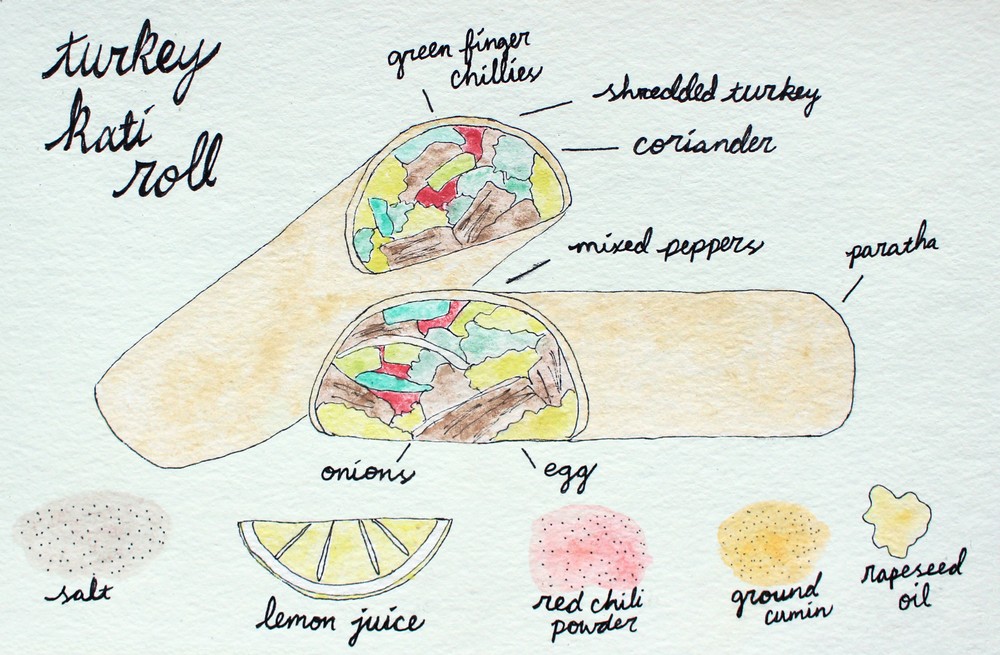 turkey
kati
roll
green finger
chillies
shredded turkey
coriander
mixed peppers
paratha
onions
egg
salt
lemon juice
red chili
powder
ground
cumin
rapeseed
oil